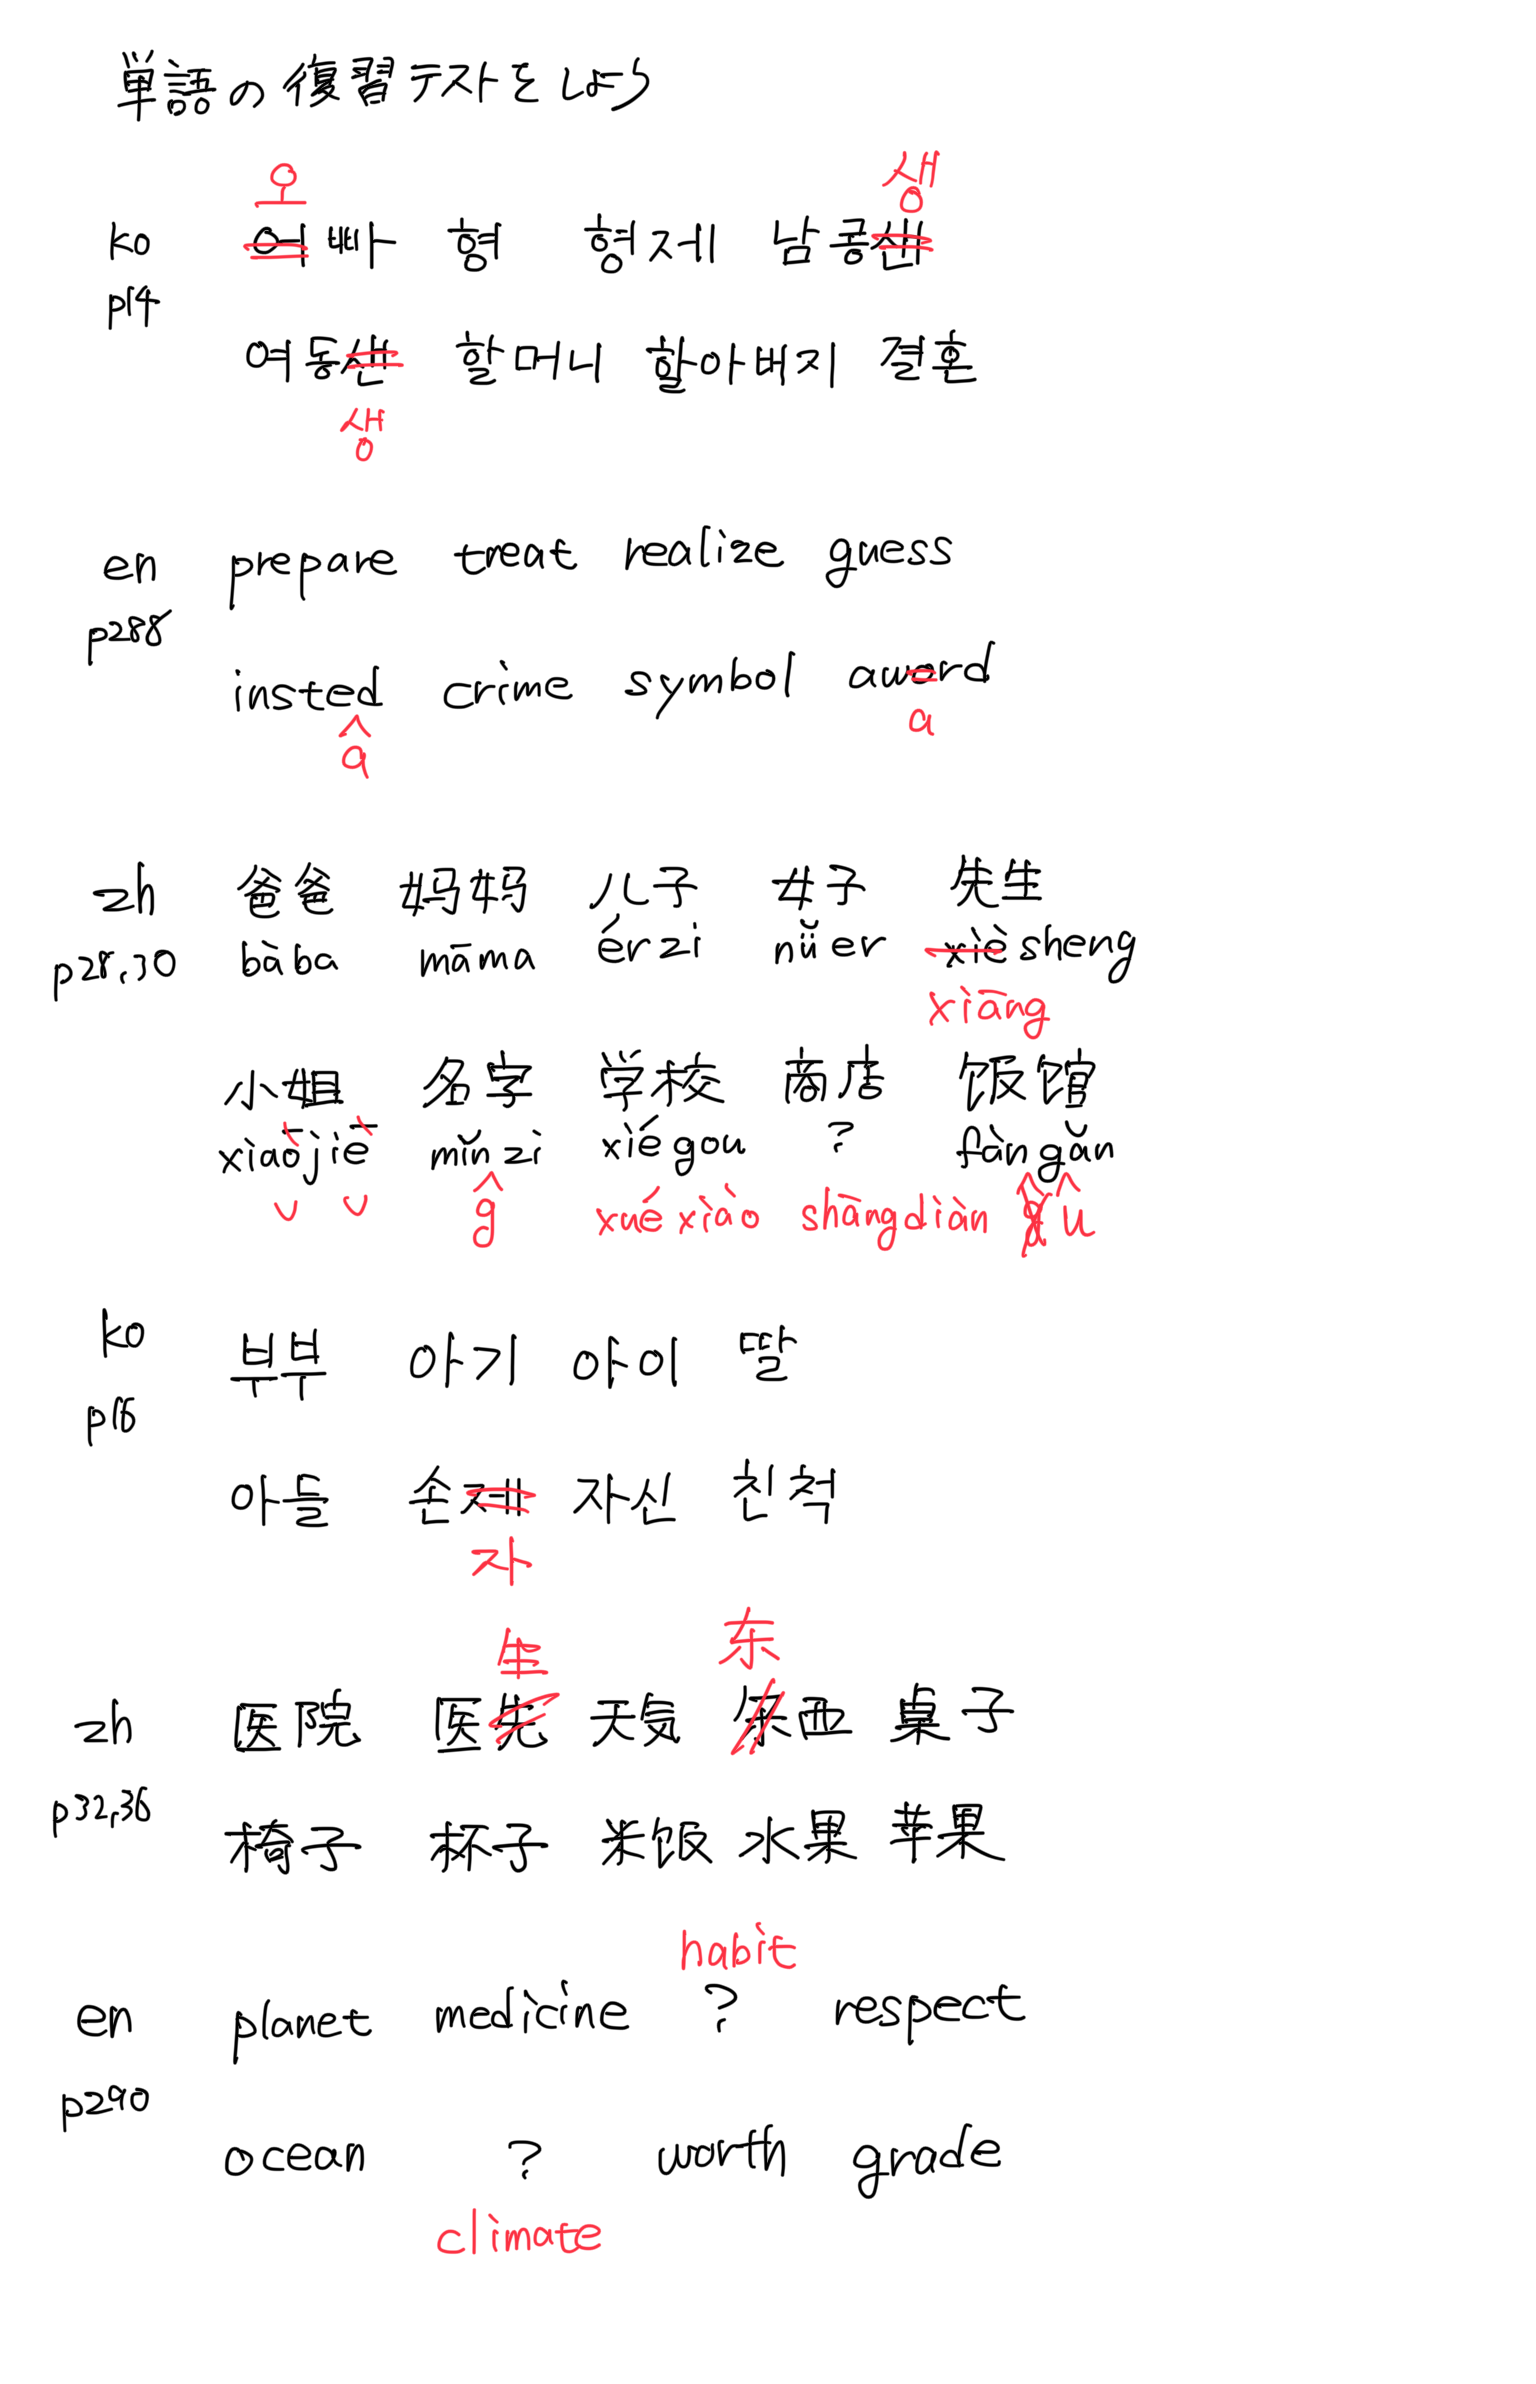 単語の復習テストをしよう
오 생
ko 어빠 형 형제 남공샌
p14
여동샌 할머니 할아버지 결혼
생
en prepare treat realize guess
p288
insted crime symbol aword
a a
zh 爸爸 妈妈 儿子 女子 先生
p28,30 bàba māma érzi nǚer xiè sheng
xiāng
小姐 名字 学校 商店 饭馆
xiāojiē mǐnzi xiégou ? fàngǎn
g xuéxiào shāngdiàn g u
ko 부부 아기 아이 딸
p16
아들 손제 자신 친척
자
生 东
zh 医院 医先 天気 余西 桌子
p32,36
椅子 杯子 米饭 水果 苹果
habit
en planet medicine ? respect
p290
ocean ? worth grade
climate